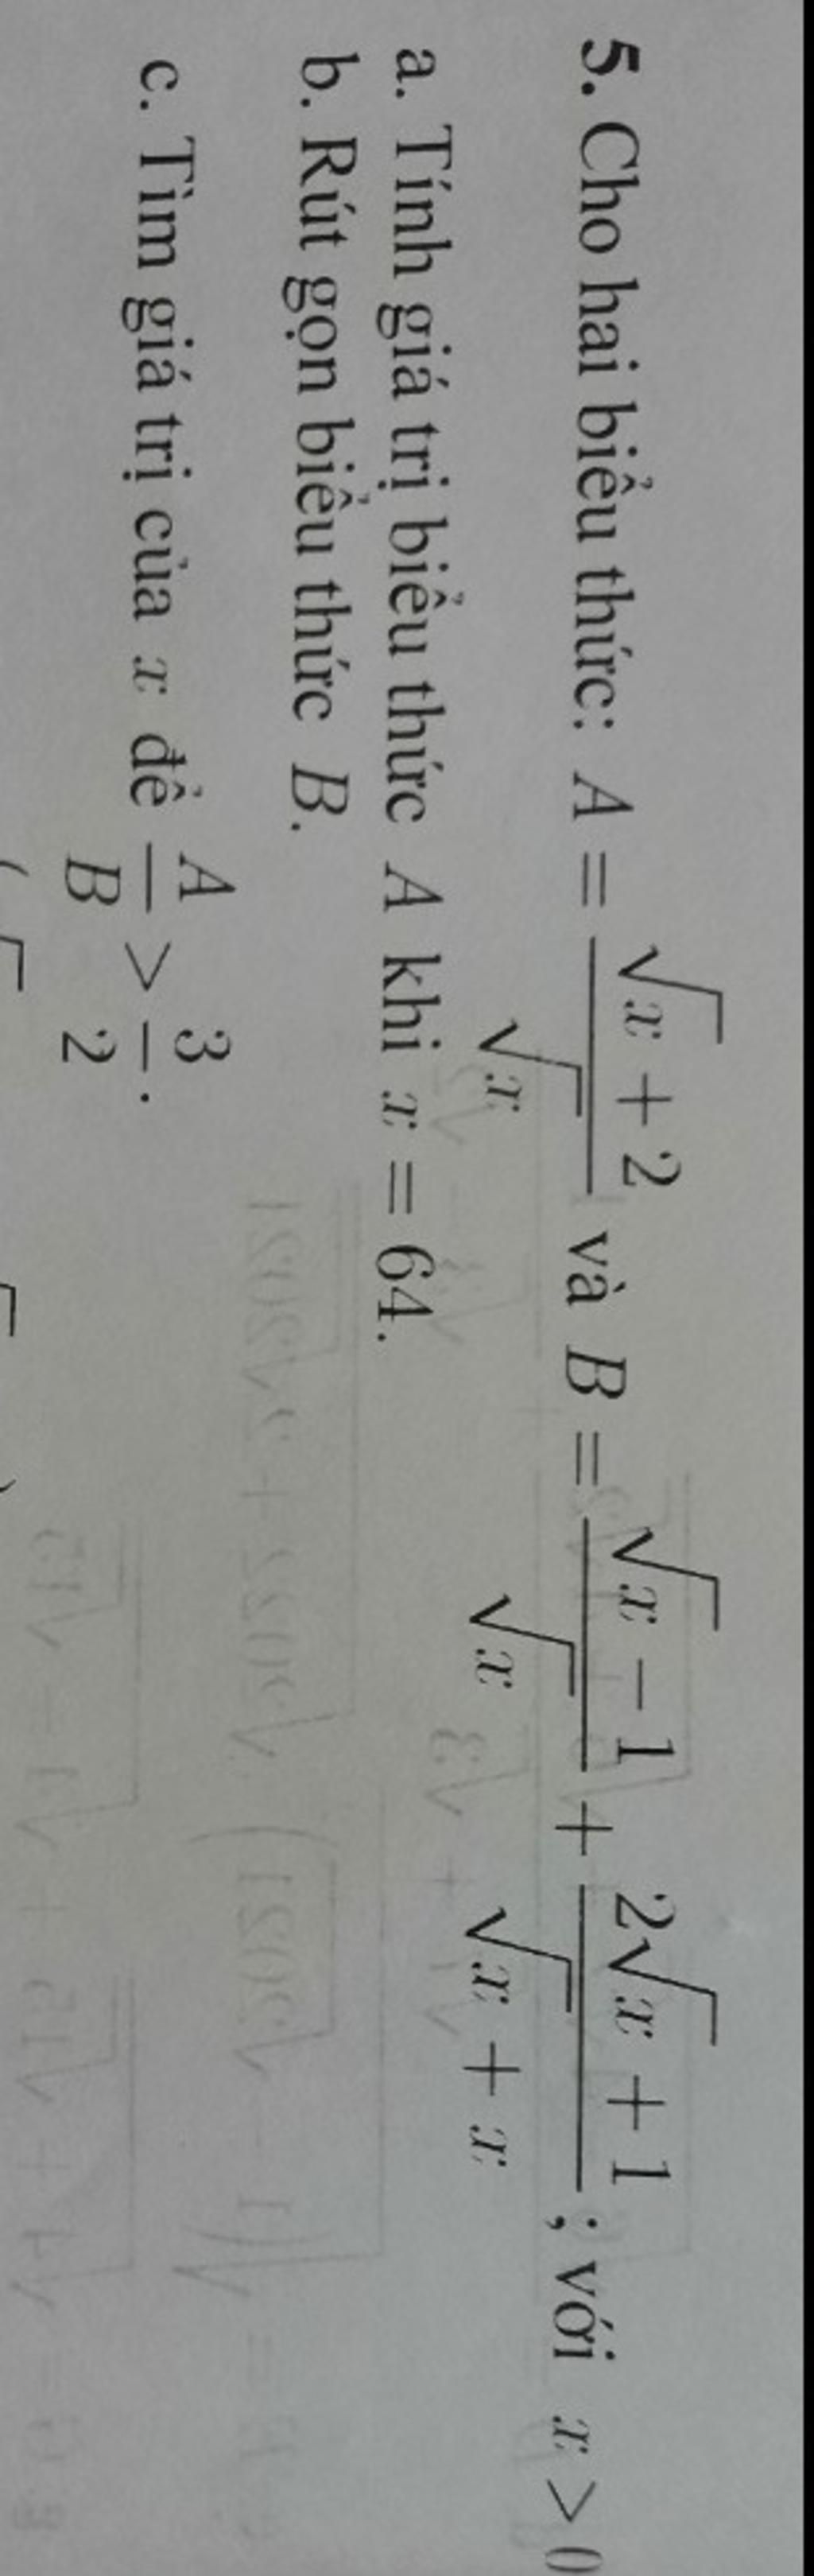 5. Cho hai biểu thức: A = \frac{\sqrt{x} + 2}{\sqrt{x}} và B = \frac{\sqrt{x} - 1}{\sqrt{x}} + \frac{2\sqrt{x} + 1}{\sqrt{x} + x}; với x > 0
a. Tính giá trị biểu thức A khi x = 64.
b. Rút gọn biểu thức B.
c. Tìm giá trị của x để \frac{A}{B} > \frac{3}{2}.